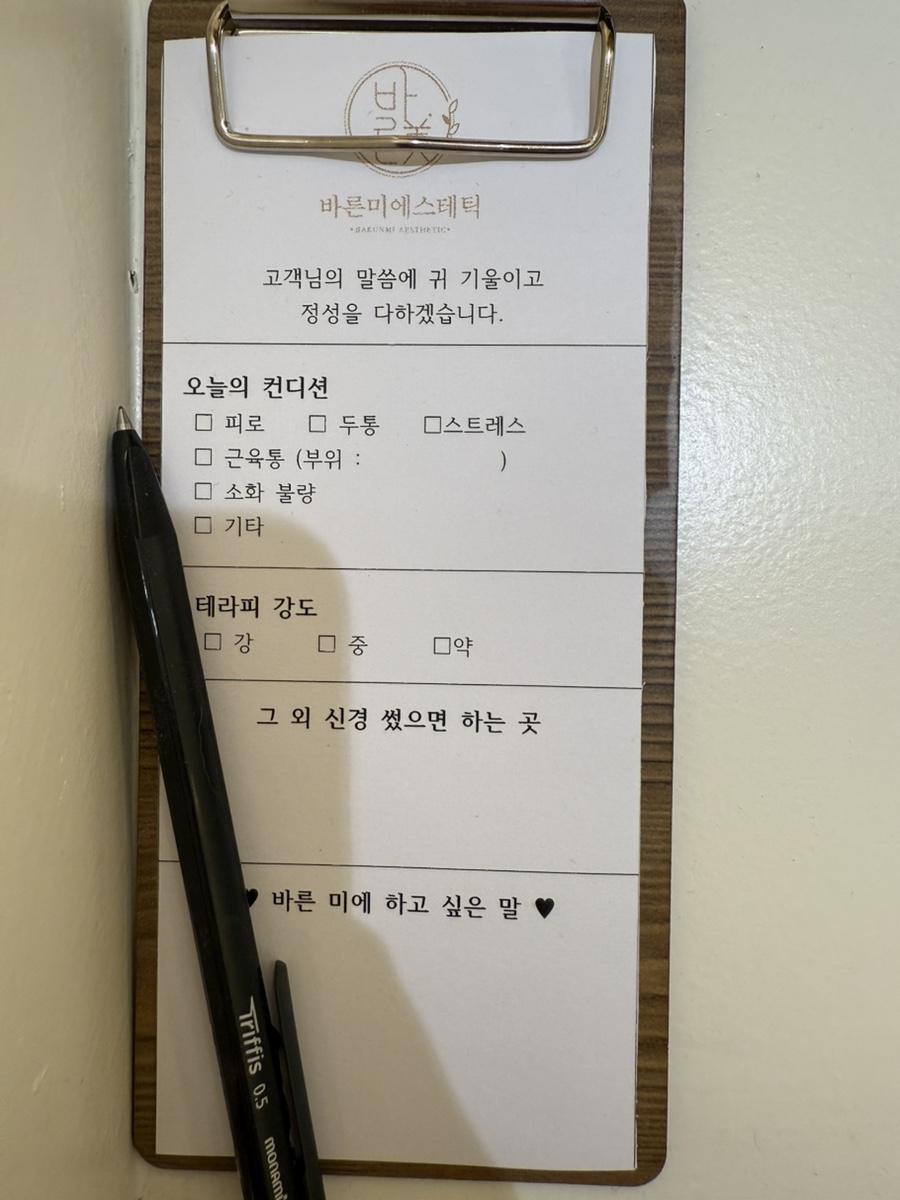 바른
바른미에스테틱
•BARUNMI AESTHETIC•
고객님의 말씀에 귀 기울이고
정성을 다하겠습니다.
오늘의 컨디션
☐ 피로 ☐ 두통 ☐스트레스
☐ 근육통 (부위 : )
☐ 소화 불량
☐ 기타
테라피 강도
☐ 강 ☐ 중 ☐약
그 외 신경 썼으면 하는 곳
♥ 바른 미에 하고 싶은 말 ♥
Triffis 0.5